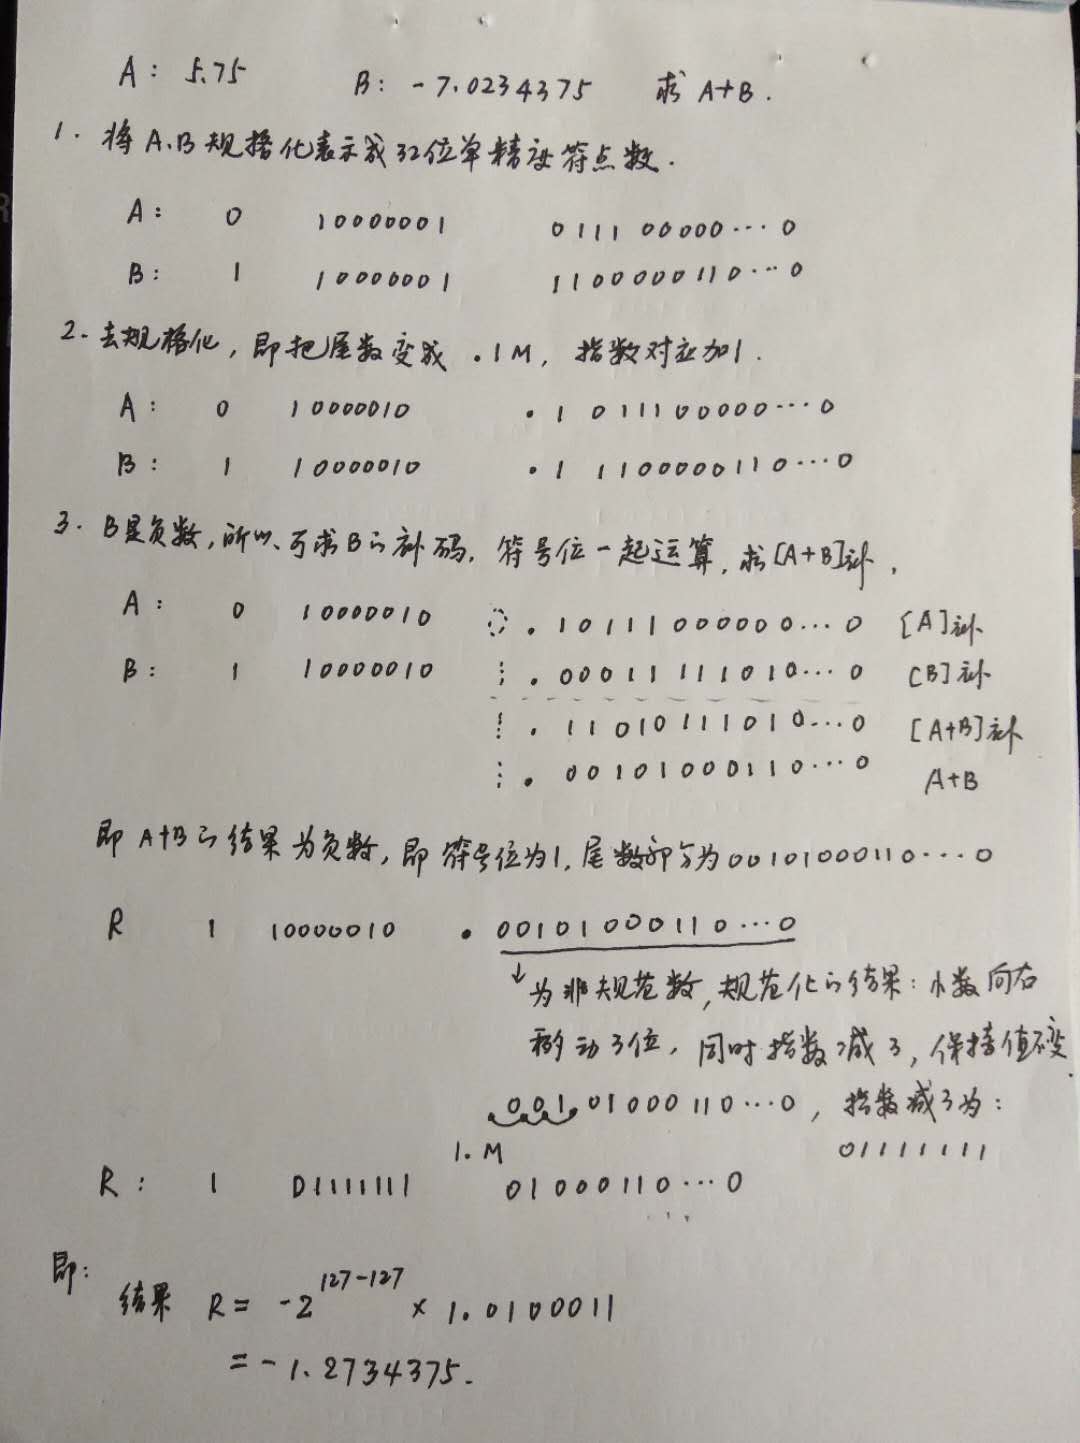 A: 5.75 B: -7.0234375 求 A+B.
1. 将A、B规格化表示成32位单精度符点数.
A: 0 10000001 0111 00000···0
B: 1 10000001 1100000110···0
2. 去规格化, 即把尾数变成 .1M, 指数对应加1.
A: 0 10000010 .1 0111 00000···0
B: 1 10000010 .1 1100000110···0
3. B是负数, 所以可求B的补码, 符号位一起运算, 求[A+B]补,
A: 0 10000010 . 10111000000···0 [A]补
B: 1 10000010 . 00011111010···0 [B]补
. 11010111010···0 [A+B]补
. 00101000110···0 A+B
即 A+B的结果为负数, 即符号位为1, 尾数部分为00101000110···0
R 1 10000010 . 00101000110···0
↓为非规范数, 规范化的结果: 小数向右
移动3位, 同时指数减3, 保持值不变.
.001.01000110···0, 指数减3为:
1.M 01111111
R: 1 01111111 01000110···0
即:
结果 R= -2^127-127 × 1.0100011
=-1.2734375.